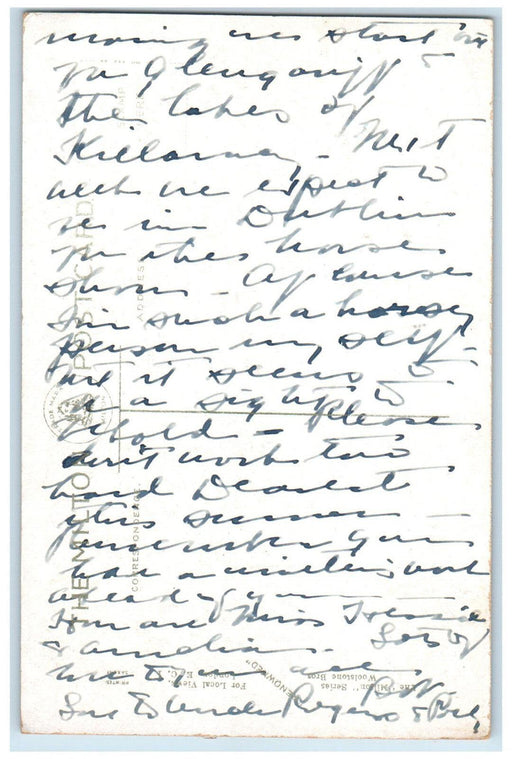 morning we start out
for Glengariff &
the lakes of
Killarney - Next
week we expect to
be in Dublin
for the horse
show - Of course
I'm such a horsey
person myself -
but it seems to
be a sight to
behold - Please
don't work too
hard Dearest
this summer -
remember you
have a winter's work
ahead of you -
How are Miss Hessie
& Amelia. Lots of
love to you and
Love to Uncle Rogers &
THE MILTON POST CARD
CORRESPONDENCE
ADDRESS
The "Milton" Series
Woolstone Bros
"RENOWNED"
For Local View
London E. C.